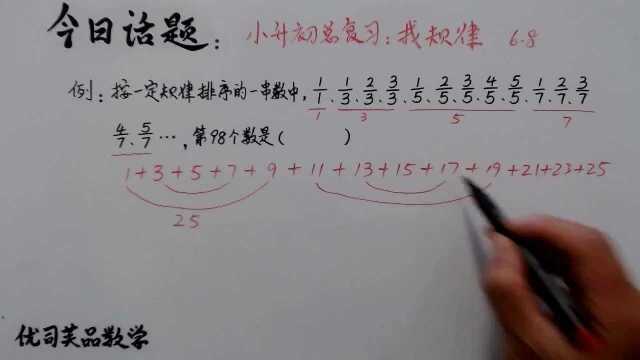 今日话题：小升初总复习：找规律 6.8
例：按一定规律排序的一串数中，1/1、1/3、2/3、3/3、1/5、2/5、3/5、4/5、5/5、1/7、2/7、3/7
1 3 5 7
4/7、5/7…，第98个数是（ ）
1+3+5+7+9+11+13+15+17+19+21+23+25
25
优司芙品数学